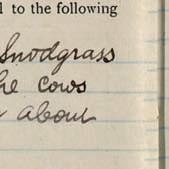 l to the following
Snodgrass
he cows
about